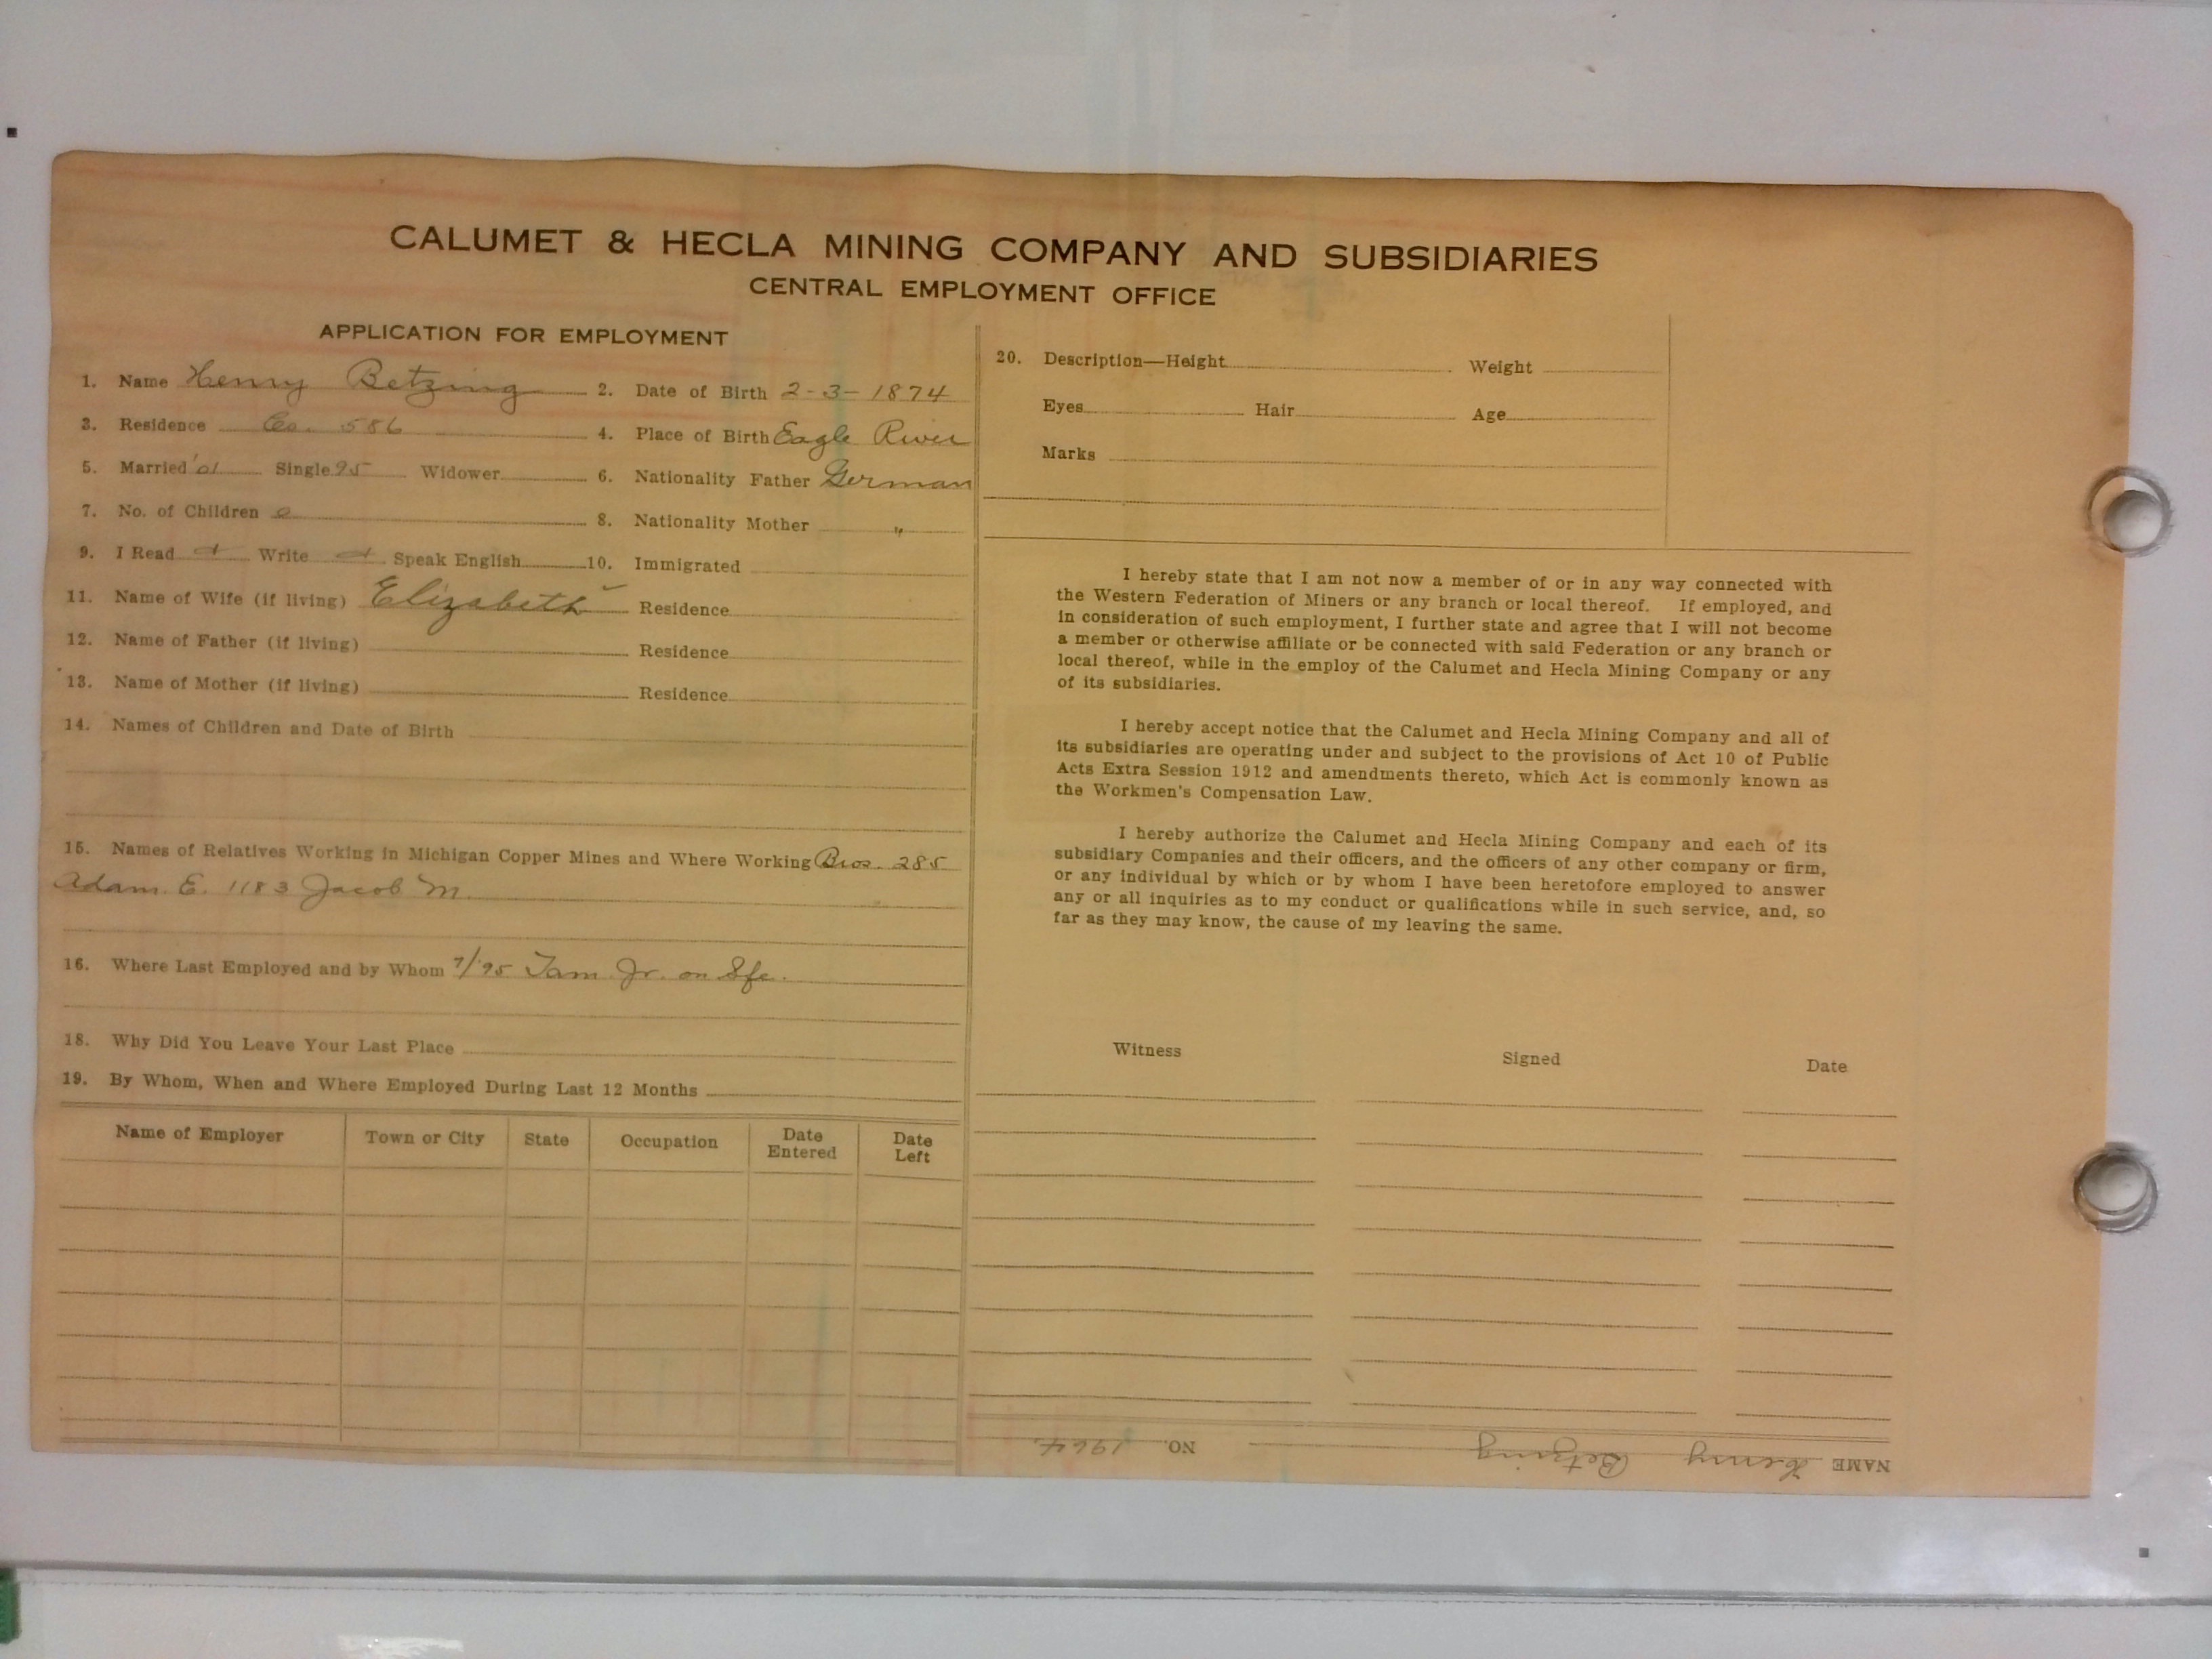 CALUMET & HECLA MINING COMPANY AND SUBSIDIARIES
CENTRAL EMPLOYMENT OFFICE
APPLICATION FOR EMPLOYMENT
1. Name Henry Betzing 2. Date of Birth 2-3-1874
3. Residence Co. 586 4. Place of Birth Eagle River
5. Married '01 Single 95 Widower 6. Nationality Father German
7. No. of Children 0 8. Nationality Mother "
9. I Read Write Speak English 10. Immigrated
11. Name of Wife (if living) Elizabeth Residence
12. Name of Father (if living) Residence
13. Name of Mother (if living) Residence
14. Names of Children and Date of Birth
15. Names of Relatives Working in Michigan Copper Mines and Where Working Bros. 285
Adam. E. 1183 Jacob M.
16. Where Last Employed and by Whom 7/'95 Tam. Jr. on Sfc.
18. Why Did You Leave Your Last Place
19. By Whom, When and Where Employed During Last 12 Months
Name of Employer Town or City State Occupation Date Entered Date Left
20. Description—Height Weight
Eyes Hair Age
Marks
I hereby state that I am not now a member of or in any way connected with
the Western Federation of Miners or any branch or local thereof. If employed, and
in consideration of such employment, I further state and agree that I will not become
a member or otherwise affiliate or be connected with said Federation or any branch or
local thereof, while in the employ of the Calumet and Hecla Mining Company or any
of its subsidiaries.
I hereby accept notice that the Calumet and Hecla Mining Company and all of
its subsidiaries are operating under and subject to the provisions of Act 10 of Public
Acts Extra Session 1912 and amendments thereto, which Act is commonly known as
the Workmen's Compensation Law.
I hereby authorize the Calumet and Hecla Mining Company and each of its
subsidiary Companies and their officers, and the officers of any other company or firm,
or any individual by which or by whom I have been heretofore employed to answer
any or all inquiries as to my conduct or qualifications while in such service, and, so
far as they may know, the cause of my leaving the same.
Witness Signed Date
NAME Henry Betzing NO. 1964